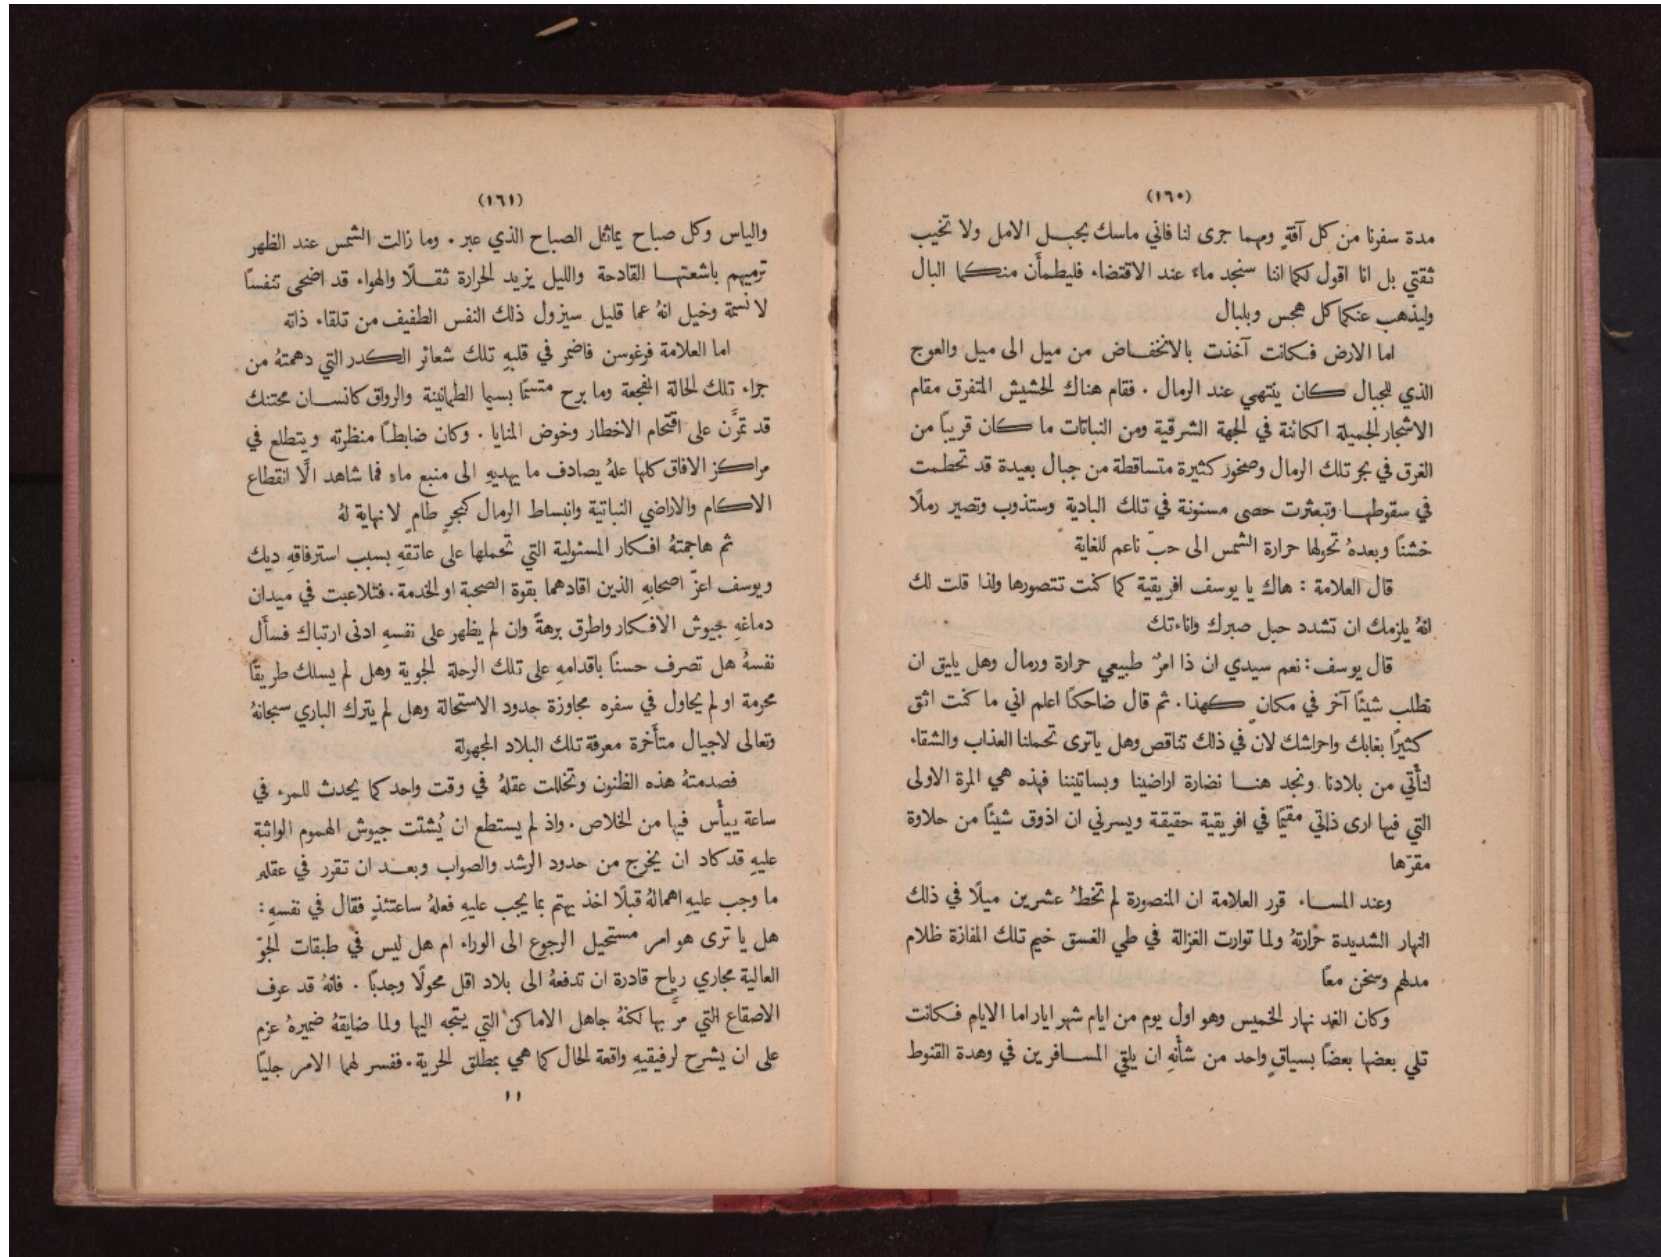 (١٦٠)
مدة سفرنا من كل آفةٍ ومهما جرى لنا فاني ماسك بجبل الامل ولا تخيب
ثقتي بل انا اقول لكما اننا سنجد ماءً عند الاقتضاء فليطمأن منكما البال
وليذهب عنكما كل هجس وبلبال
اما الارض فكانت آخذت بالانخفاض من ميل الى ميل والعوج
الذي للجبال كان ينتهي عند الرمال . فقام هناك الحشيش المتفرق مقام
الاشجار الجميلة الكائنة في الجهة الشرقية ومن النباتات ما كان قريباً من
الغرق في بحر تلك الرمال وصخور كثيرة متساقطة من جبال بعيدة قد تحطمت
في سقوطها وتبعثرت حصى مسنونة في تلك البادية وستذوب وتصير رملًا
خشنًا وبعدهُ تحولها حرارة الشمس الى حبّ ناعم للغاية
قال العلامة : هاك يا يوسف افريقية كما كنت تتصورها ولذا قلت لك
انهُ يلزمك ان تشدد حبل صبرك واناءتك
قال يوسف : نعم سيدي ان ذا امرٌ طبيعي حرارة ورمال وهل يليق ان
نطلب شيئًا آخر في مكانٍ كهذا . ثم قال ضاحكًا اعلم اني ما كنت اثق
كثيرًا بغابك واحراشك لان في ذلك تناقص وهل ياترى تحملنا العذاب والشقاء
لنأتي من بلادنا ونجد هنا نضارة اراضينا وبساتيننا فهذه هي المرة الاولى
التي فيها ارى ذاتي مقيمًا في افريقية حقيقة ويسرني ان اذوق شيئًا من حلاوة
مقرّها
وعند المساء قرر العلامة ان المنصورة لم تخطُ عشرين ميلًا في ذلك
النهار الشديدة حرارتهُ ولما توارت الغزالة في طي الغسق خيم تلك المفازة ظلام
مدلهم وسخن معًا
وكان الغد نهار الخميس وهو اول يوم من ايام شهر ايار اما الايام فكانت
تلي بعضها بعضًا بسياقٍ واحد من شأنهِ ان يلقي المسافرين في وهدة القنوط
(١٦١)
والياس وكل صباح يماثل الصباح الذي عبر . وما زالت الشمس عند الظهر
ترميهم باشعتها القادحة والليل يزيد الحرارة ثقلًا والهواء قد اضحى تنفسًا
لا نسمة وخيل انهُ عما قليل سيزول ذلك النفس الطفيف من تلقاء ذاته
اما العلامة فرغوسن فاضمر في قلبهِ تلك شعائر الكدر التي دهمتهُ من
جراء تلك الحالة المفجعة وما برح متسمًا بسيما الطمانينة والرواق كانسان محتنك
قد تمرَّن على اقتحام الاخطار وخوض المنايا . وكان ضابطًا منظرته ويتطلع في
مراكز الافاق كلها علهُ يصادف ما يهديهِ الى منبع ماءٍ فما شاهد الَّا انقطاع
الاكام والاراضي النباتية وانبساط الرمال كبحرٍ طامٍ لا نهاية لهُ
ثم هاجمتهُ افكار المسئولية التي تحملها على عاتقهِ بسبب استرفاقهِ ديك
ويوسف اعزّ اصحابهِ الذين اقادهما بقوة الصحبة او الخدمة . فتلاعبت في ميدان
دماغهِ جيوش الافكار واطرق برهةً وان لم يظهر على نفسهِ ادنى ارتباك فسأل
نفسهُ هل تصرف حسنًا باقدامهِ على تلك الرحلة الجوية وهل لم يسلك طريقًا
محرمة او لم يحاول في سفره مجاوزة حدود الاستحالة وهل لم يترك الباري سبحانهُ
وتعالى لاجيال متأخرة معرفة تلك البلاد المجهولة
فصدمتهُ هذه الظنون وتخللت عقلهُ في وقت واحد كما يحدث للمرء في
ساعة ييأس فيها من الخلاص . واذ لم يستطع ان يُشتت جيوش الهموم الواثبة
عليهِ قد كاد ان يخرج من حدود الرشد والصواب وبعد ان تقرر في عقلهِ
ما وجب عليهِ اهمالهُ قبلًا اخذ يهتم بما يجب عليهِ فعلهُ ساعتئذٍ فقال في نفسهِ :
هل يا ترى هو امر مستحيل الرجوع الى الوراء ام هل ليس في طبقات الجوّ
العالية مجاري رياح قادرة ان تدفعهُ الى بلاد اقل محولًا وجدبًا . فانهُ قد عرف
الاصقاع التي مرَّ بها لكنهُ جاهل الاماكن التي يتجه اليها ولما ضايقهُ ضميرهُ عزم
على ان يشرح لرفيقيهِ واقعة الحال كما هي بمطلق الحرية . ففسر لهما الامر جليًا
١١